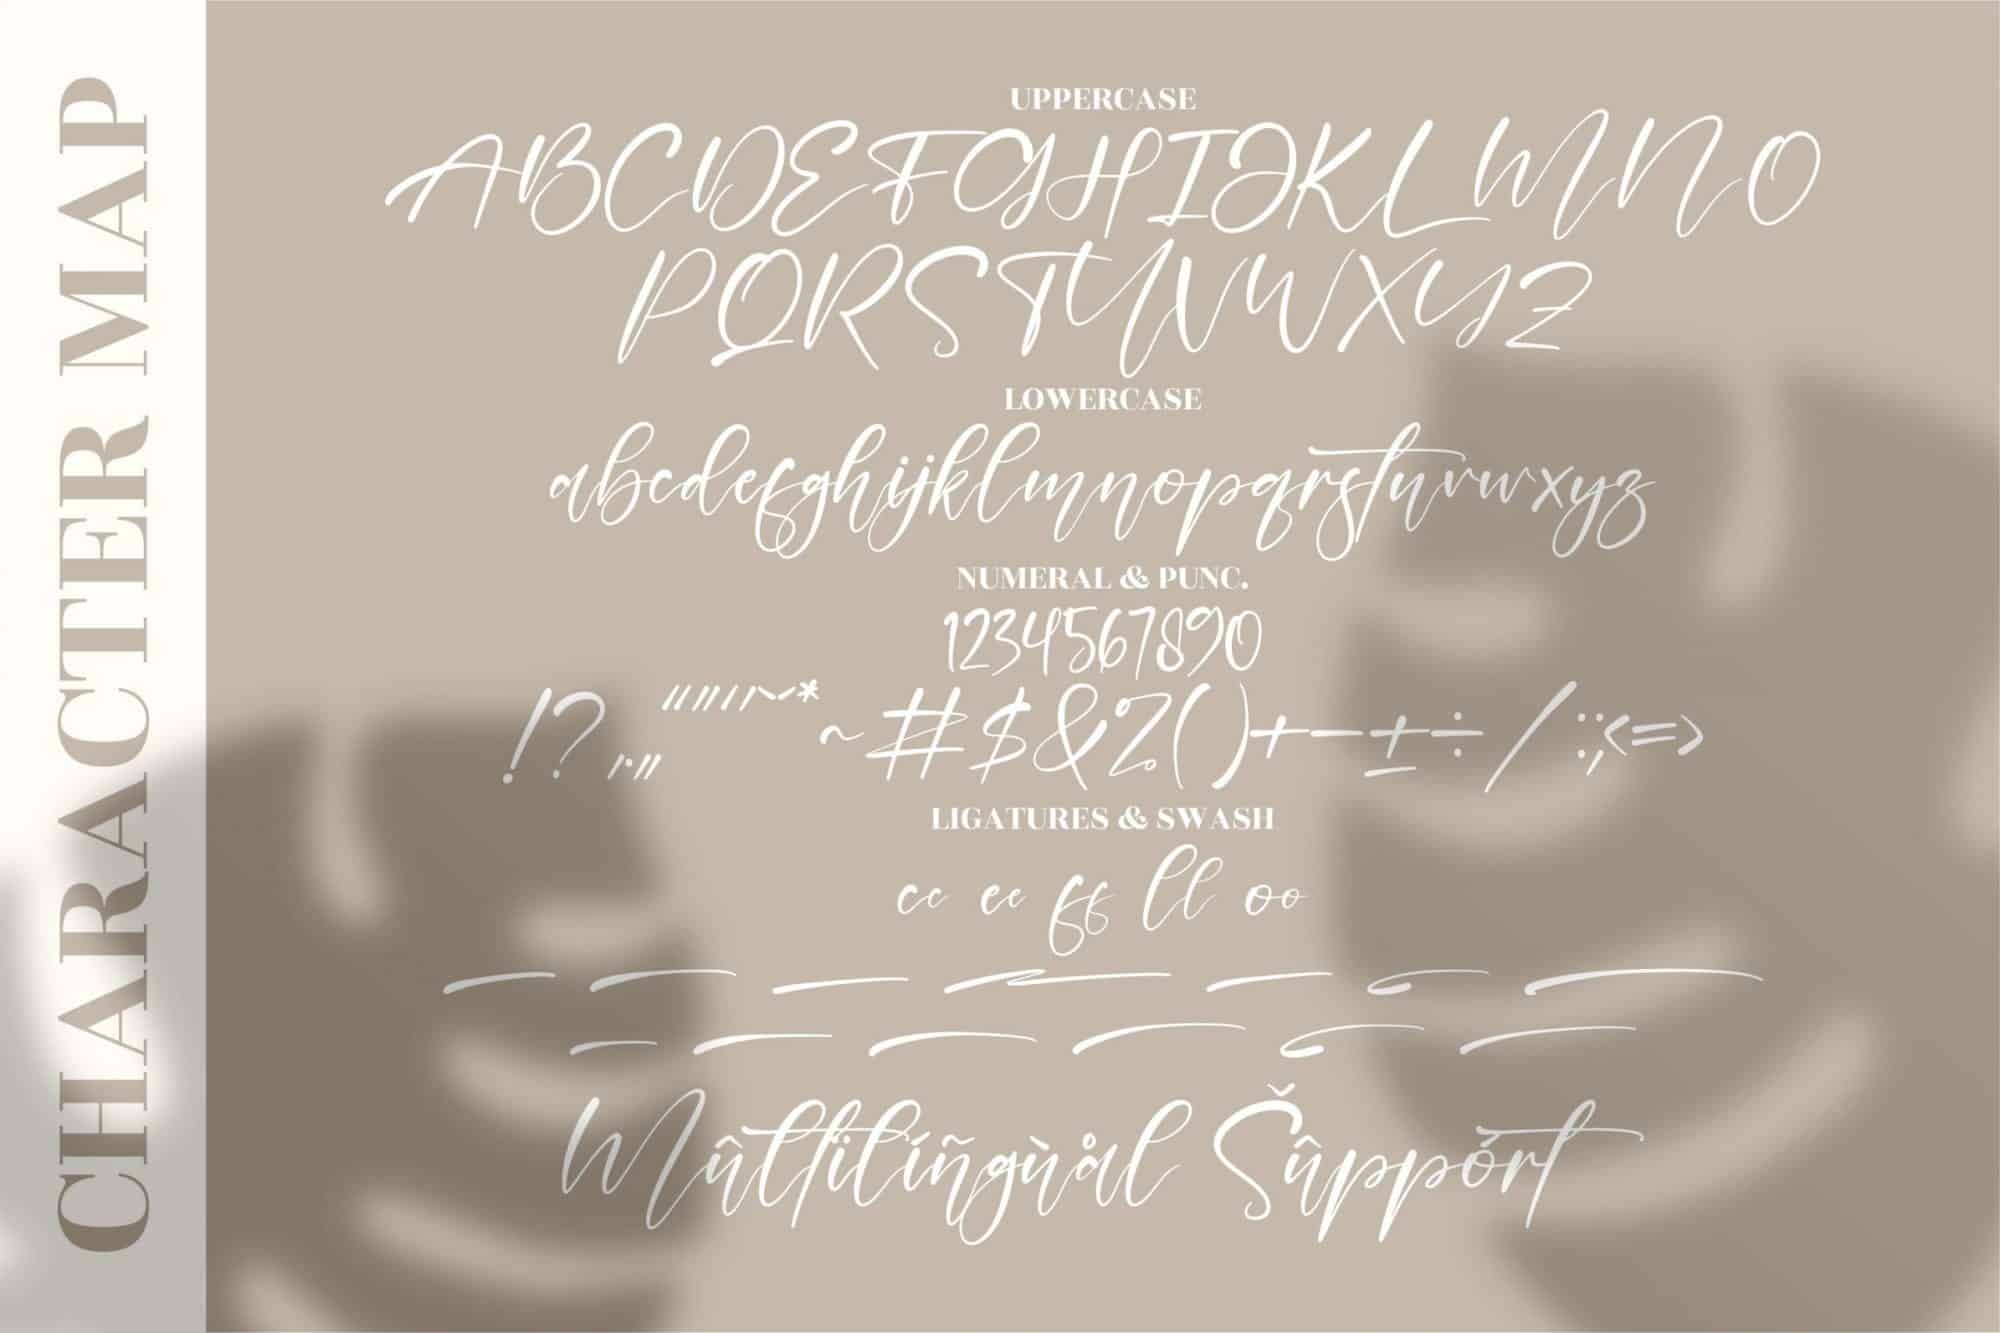 CHARACTER MAP
UPPERCASE
ABCDEFGHIJKLMNO
PQRSTUVWXYZ
LOWERCASE
abcdefghijklmnopqrstuvwxyz
NUMERAL & PUNC.
1234567890
!?,.„ “”‘’^~* ~#$&%()+−±÷/:;<=>
LIGATURES & SWASH
cc ee ff ll oo
Mûltïlíñgùål Šûppört